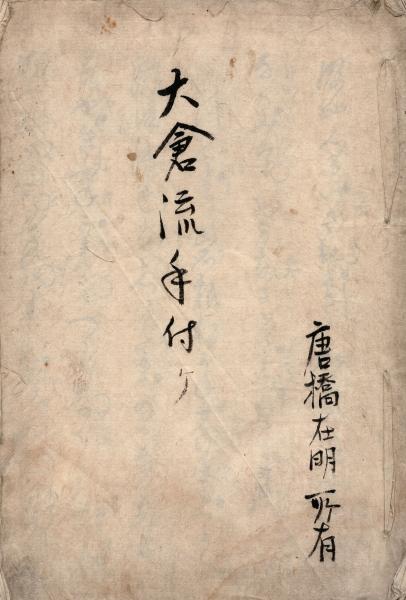 唐橋在明所有
大倉流手付ケ